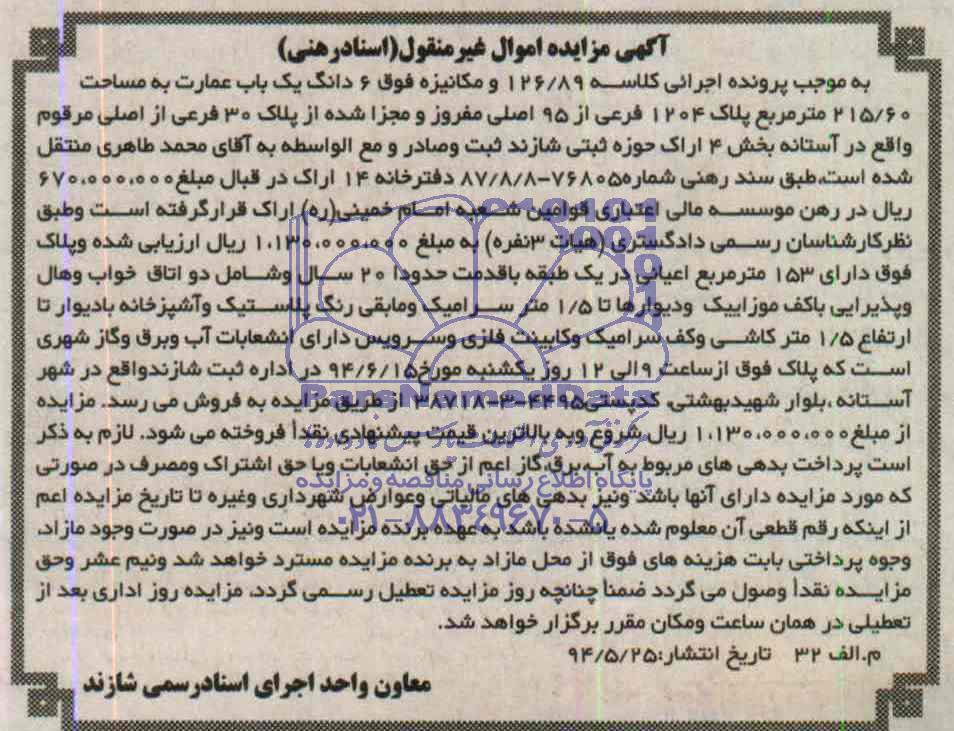 آگهی مزایده اموال غیرمنقول(اسنادرهنی)
به موجب پرونده اجرائی کلاسه ۱۲۶/۸۹ و مکانیزه فوق ۶ دانگ یک باب عمارت به مساحت
۲۱۵/۶۰ مترمربع پلاک ۱۲۰۴ فرعی از ۹۵ اصلی مفروز و مجزا شده از پلاک ۳۰ فرعی از اصلی مرقوم
واقع در آستانه بخش ۴ اراک حوزه ثبتی شازند ثبت وصادر و مع الواسطه به آقای محمد طاهری منتقل
شده است،طبق سند رهنی شماره۷۶۸۰۵-۸۷/۸/۸ دفترخانه ۱۴ اراک در قبال مبلغ۶۷۰،۰۰۰،۰۰۰
ریال در رهن موسسه مالی اعتباری قوامین شعبه امام خمینی(ره) اراک قرارگرفته است وطبق
نظرکارشناسان رسمی دادگستری (هیات ۳نفره) به مبلغ ۱،۱۳۰،۰۰۰،۰۰۰ ریال ارزیابی شده وپلاک
فوق دارای ۱۵۳ مترمربع اعیانی در یک طبقه باقدمت حدودا ۲۰ سال وشامل دو اتاق خواب وهال
وپذیرایی باکف موزاییک ودیوارها تا ۱/۵ متر سرامیک ومابقی رنگ پلاستیک وآشپزخانه بادیوار تا
ارتفاع ۱/۵ متر کاشی وکف سرامیک وکابینت فلزی وسرویس دارای انشعابات آب وبرق وگاز شهری
است که پلاک فوق ازساعت ۹الی ۱۲ روز یکشنبه مورخ۹۴/۶/۱۵ در اداره ثبت شازندواقع در شهر
آستانه ،بلوار شهیدبهشتی، کدپستی۴۴۹۵-۳-۳۸۷۱۸ ازطریق مزایده به فروش می رسد. مزایده
از مبلغ۱،۱۳۰،۰۰۰،۰۰۰ ریال شروع وبه بالاترین قیمت پیشنهادی نقداً فروخته می شود. لازم به ذکر
است پرداخت بدهی های مربوط به آب،برق،گاز اعم از حق انشعابات ویا حق اشتراک ومصرف در صورتی
که مورد مزایده دارای آنها باشد ونیز بدهی های مالیاتی وعوارض شهرداری وغیره تا تاریخ مزایده اعم
از اینکه رقم قطعی آن معلوم شده یانشده باشد به عهده برنده مزایده است ونیز در صورت وجود مازاد،
وجوه پرداختی بابت هزینه های فوق از محل مازاد به برنده مزایده مسترد خواهد شد ونیم عشر وحق
مزایده نقداً وصول می گردد ضمناً چنانچه روز مزایده تعطیل رسمی گردد، مزایده روز اداری بعد از
تعطیلی در همان ساعت ومکان مقرر برگزار خواهد شد.
م.الف ۳۲ تاریخ انتشار:۹۴/۵/۲۵
معاون واحد اجرای اسنادرسمی شازند
ParsNamadData
پایگاه اطلاع رسانی مناقصه و مزایده
۰۲۱-۸۸۳۴۹۶۷۰-۵